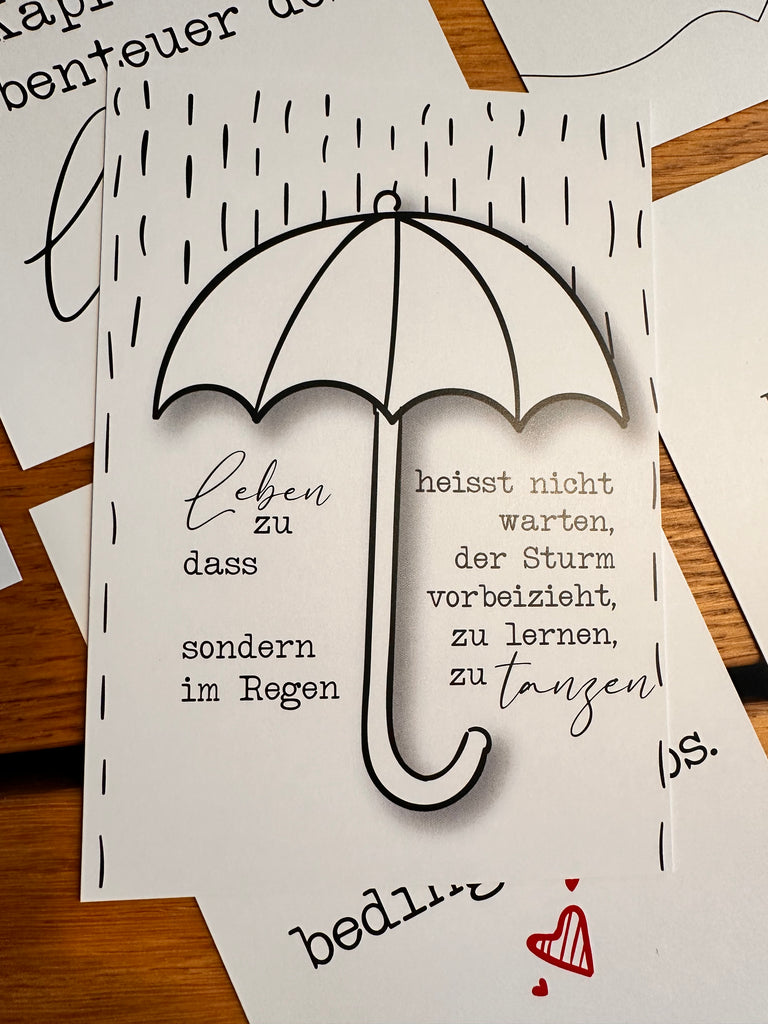 benteuer
leben heisst nicht
zu warten,
dass der Sturm
vorbeizieht,
sondern zu lernen,
im Regen zu tanzen